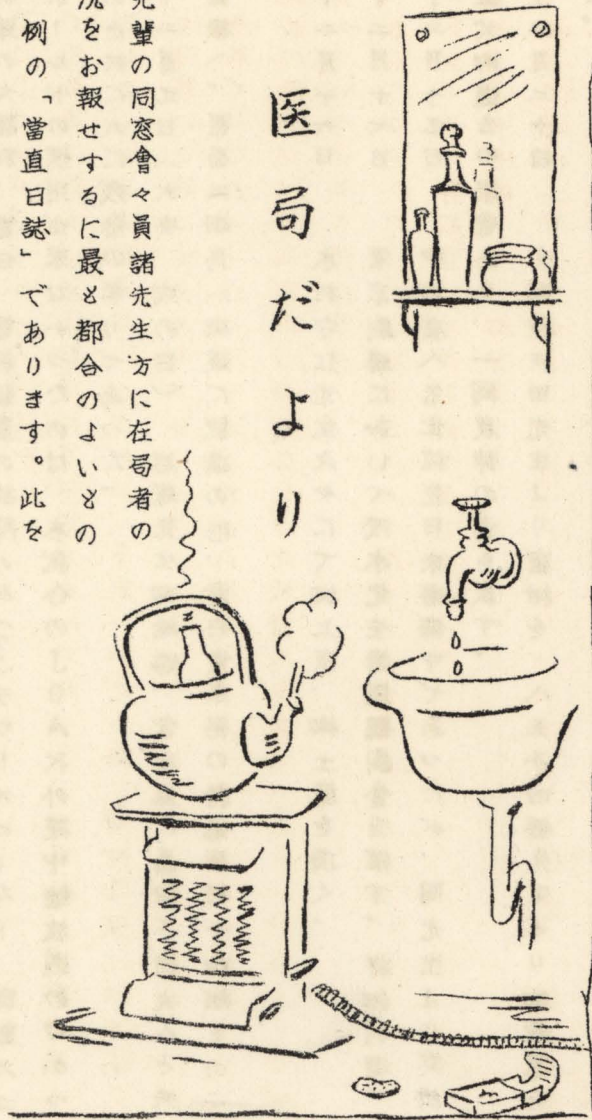 医局だより
先輩の同窓會々員諸先生方に在局者の
況をお報せするに最も都合のよいもの
例の「當直日誌」であります。此を